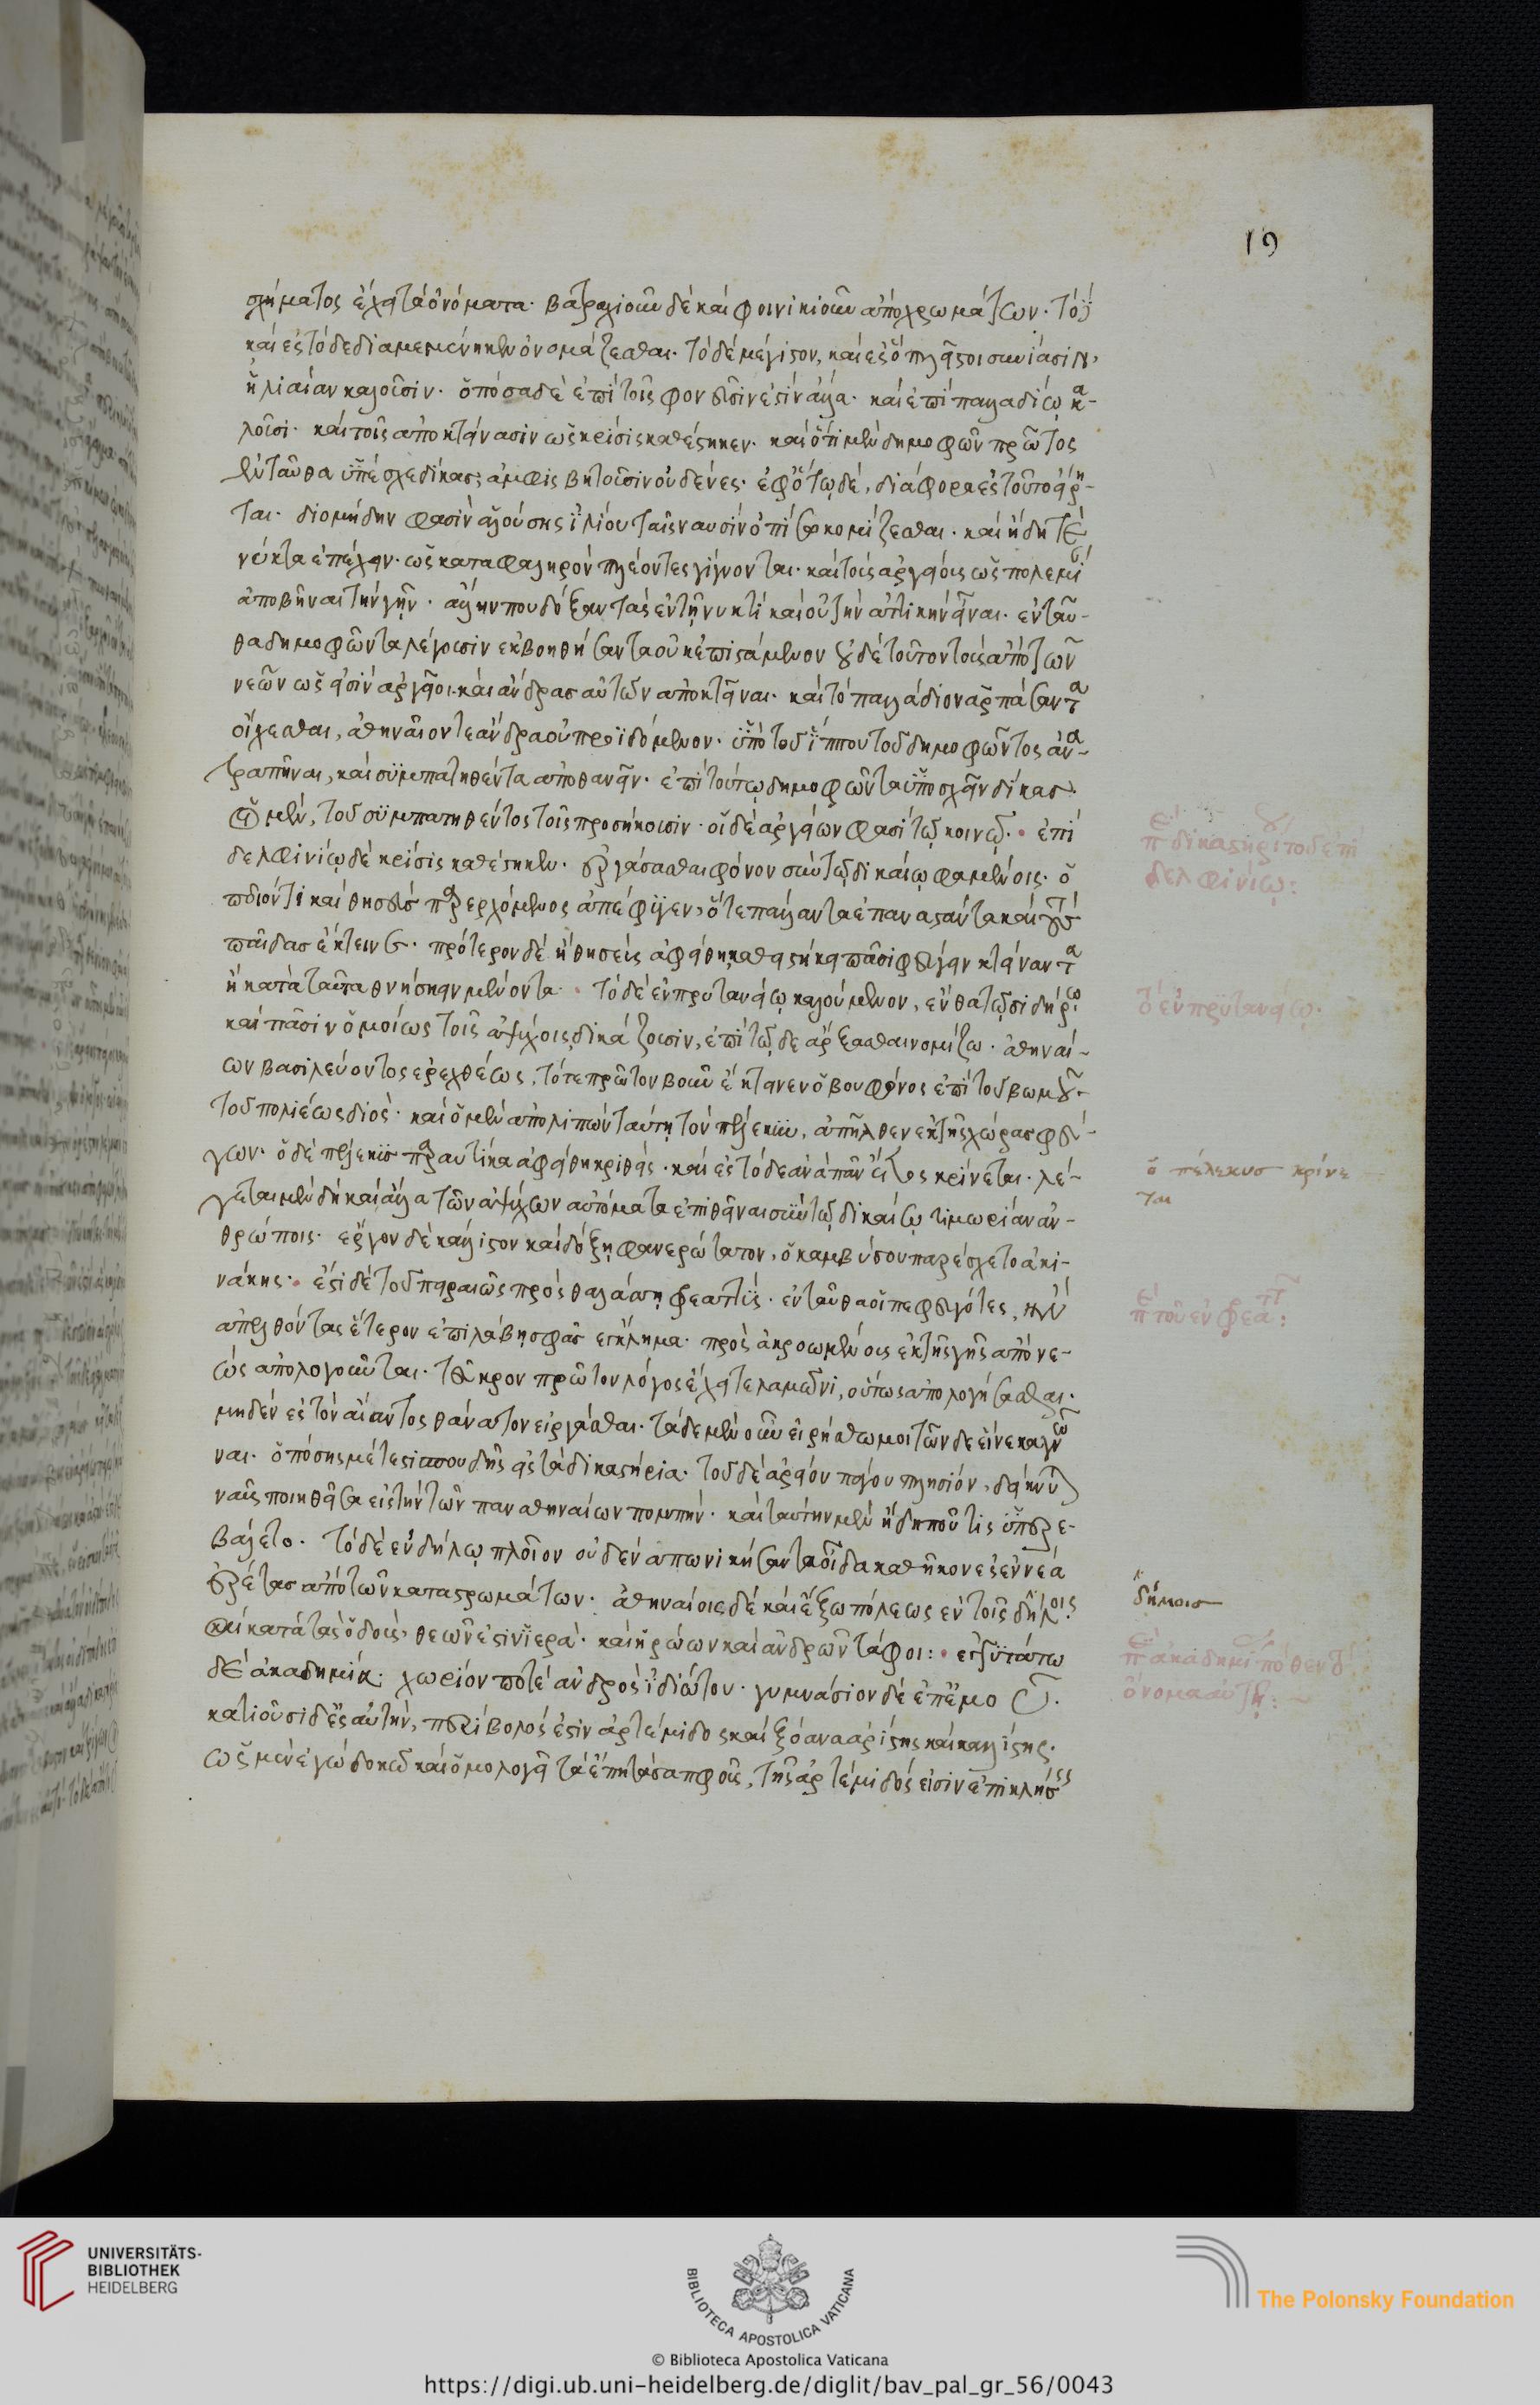 19
σχήματος ἔχει τὰ ὀνόματα· βατραχιοῦν δὲ καὶ φοινικιοῦν ἀπὸ χρωμάτων·
καὶ ἐς τόδε διαμεμένηκεν ὀνομάζεσθαι· τὸ δὲ μέγιστον, καὶ ἐς ὃ πλεῖστοι συνίασιν,
ἡλιαίαν καλοῦσιν· ὁπόσα δὲ ἐπὶ τοῖς φονεῦσιν ἐστὶν ἄλλα· καὶ ἐπὶ παλλαδίω κα-
λοῦσι· καὶ τοῖς ἀποκτείνασιν ὡς κρίσις καθέστηκεν· καὶ ὅτι μὲν δημοφῶν πρῶτος
ἐνταῦθα ὑπέσχε δίκας, ἀμφισβητοῦσιν οὐδένες· ἐφ' ὅτω δὲ, διάφορα ἐς τοῦτο εἴρη-
ται· διομήδην φασὶν ἁλούσης ἰλίου ταῖς ναυσὶν ὀπίσω κομίζεσθαι· καὶ ἤδη τε
νύκτα ἐπέχειν· ὡς κατὰ φαληρὸν πλέοντες γίγνονται· καὶ τοὺς ἀργείους ὡς πολεμί
ἀποβῆναι τὴν γῆν· ἄλλην που δόξαντας ἐν τῇ νυκτὶ καὶ οὐ τὴν ἀττικὴν εἶναι· ἐνταῦ-
θα δημοφῶντα λέγουσιν ἐκβοηθήσαντα οὐκ ἐπιστάμενον οὐδὲ τοῦτον τοὺς ἀπὸ τῶν
νεῶν ὡς εἰσὶν ἀργεῖοι· καὶ ἄνδρας αὐτῶν ἀποκτεῖναι· καὶ τὸ παλλάδιον ἁρπάσαντα
οἴχεσθαι, ἀθηναῖόν τε ἄνδρα οὐ προϊδόμενον· ὑπὸ τοῦ ἵππου τοῦ δημοφῶντος ἀνα-
τραπῆναι, καὶ συμπατηθέντα ἀποθανεῖν· ἐπὶ τούτω δημοφῶντα ὑποσχεῖν δίκας·
οἱ μὲν, τοῦ συμπατηθέντος τοῖς προσήκουσιν· οἱ δὲ ἀργείων φασὶ τῷ κοινῷ· ἐπὶ
δελφινίω δὲ κρίσις καθέστηκεν· ἐργάσασθαι φόνον σὺν τῷ δικαίω φαμένοις· ὁ
ποιόν τι καὶ θησεὺς παρερχόμενος ἀπέφυγεν, ὅτε πάλλαντα ἐπαναστάντα καὶ τοὺς
παῖδας ἔκτεινε· πρότερον δὲ ἢ θησεὺς ἀφείθη, καθειστήκει πᾶσι φεύγειν κτείναντα
ἢ κατὰ ταῦτα θνήσκειν μένοντα· τὸ δὲ ἐν πρυτανείω καλούμενον, ἔνθα τῷ σιδήρω
καὶ πᾶσιν ὁμοίως τοῖς ἀψύχοις δικάζουσιν, ἐπὶ τῷδε ἄρξασθαι νομίζω· ἀθηναί-
ων βασιλεύοντος ἐρεχθέως, τότε πρῶτον βοῦν ἔκτεινεν ὁ βουφόνος ἐπὶ τοῦ βωμοῦ
τοῦ πολιέως διός· καὶ ὁ μὲν ἀπολιπὼν ταύτῃ τὸν πέλεκυν, ἀπῆλθεν ἐκ τῆς χώρας φεύ-
γων· ὁ δὲ πέλεκυς παραυτίκα ἀφείθη κριθείς· καὶ ἐς τόδε ἀνὰ πᾶν ἔτος κρίνεται· λέ-
γεται μὲν δὴ καὶ ἄλλα τῶν ἀψύχων αὐτόματα ἐπιθεῖναι σὺν τῷ δικαίω τιμωρίαν ἀν-
θρώποις· ἔργον δὲ κάλλιστον καὶ δόξῃ φανερώτατον, ὁ καμβύσου παρέσχετο ἀκι-
νάκης· ἔστι δὲ τοῦ πειραιῶς πρὸς θαλάσσῃ φρεαττύς· ἐνταῦθα οἱ πεφευγότες, ἢν
ἀπελθόντας ἕτερον ἐπιλάβῃ σφᾶς ἔγκλημα· πρὸς ἀκροωμένους ἐκ τῆς γῆς ἀπὸ νε-
ὼς ἀπολογοῦνται· τεῦκρον πρῶτον λόγος ἔχει τελαμῶνι, οὕτως ἀπολογήσασθαι·
μηδὲν ἐς τὸν αἴαντος θάνατον εἰργάσθαι· τάδε μὲν οὖν εἰρήσθω μοι τῶνδε εἵνεκα γνῶ
ναι· ὁπόσης μέτεστι σπουδῆς ἐς τὰ δικαστήρια· τοῦ δὲ ἀρείου πάγου πλησίον, δείκνυ
ναῦς ποιηθεῖσα εἰς τὴν τῶν παναθηναίων πομπήν· καὶ ταύτην μὲν ἤδη πού τις ὑπερε-
βάλετο· τὸ δὲ ἐν δήλω πλοῖον οὐδένα πω νικήσαντα οἶδα καθῆκον ἐς ἐννέα
ἐρέτας ἀπὸ τῶν καταστρωμάτων· ἀθηναίοις δὲ καὶ ἔξω πόλεως ἐν τοῖς δήλοις
καὶ κατὰ τὰς ὁδοὺς, θεῶν ἐστὶν ἱερὰ· καὶ ἡρώων καὶ ἀνδρῶν τάφοι: ἐγγυτάτω
δὲ ἀκαδημία· χωρίον ποτὲ ἀνδρὸς ἰδιώτου· γυμνάσιον δὲ ἐπ' ἐμο
κατιοῦσι δὲ ἐς αὐτήν, περίβολός ἐστιν ἀρτέμιδος καὶ ξόανα ἀρίστης καὶ καλλίστης·
ὡς μὲν ἐγὼ δοκῶ καὶ ὁμολογεῖ τὰ ἔπη τὰ σαπφοῦς, τῆς ἀρτέμιδός εἰσιν ἐπικλήσεις
δικαστηρι τὸ δὲ ἐπὶ
δελφινίω:
ἐν πρυτανείω·
ὁ πέλεκυσ κρίνε
ται
τοῦ ἐν φρεατ:
δήμοισ
ἀκαδημί πόθεν
ὄνομα αὐτῇ:
UNIVERSITÄTS-
BIBLIOTHEK
HEIDELBERG
BIBLIOTECA APOSTOLICA VATICANA
The Polonsky Foundation
© Biblioteca Apostolica Vaticana
https://digi.ub.uni-heidelberg.de/diglit/bav_pal_gr_56/0043